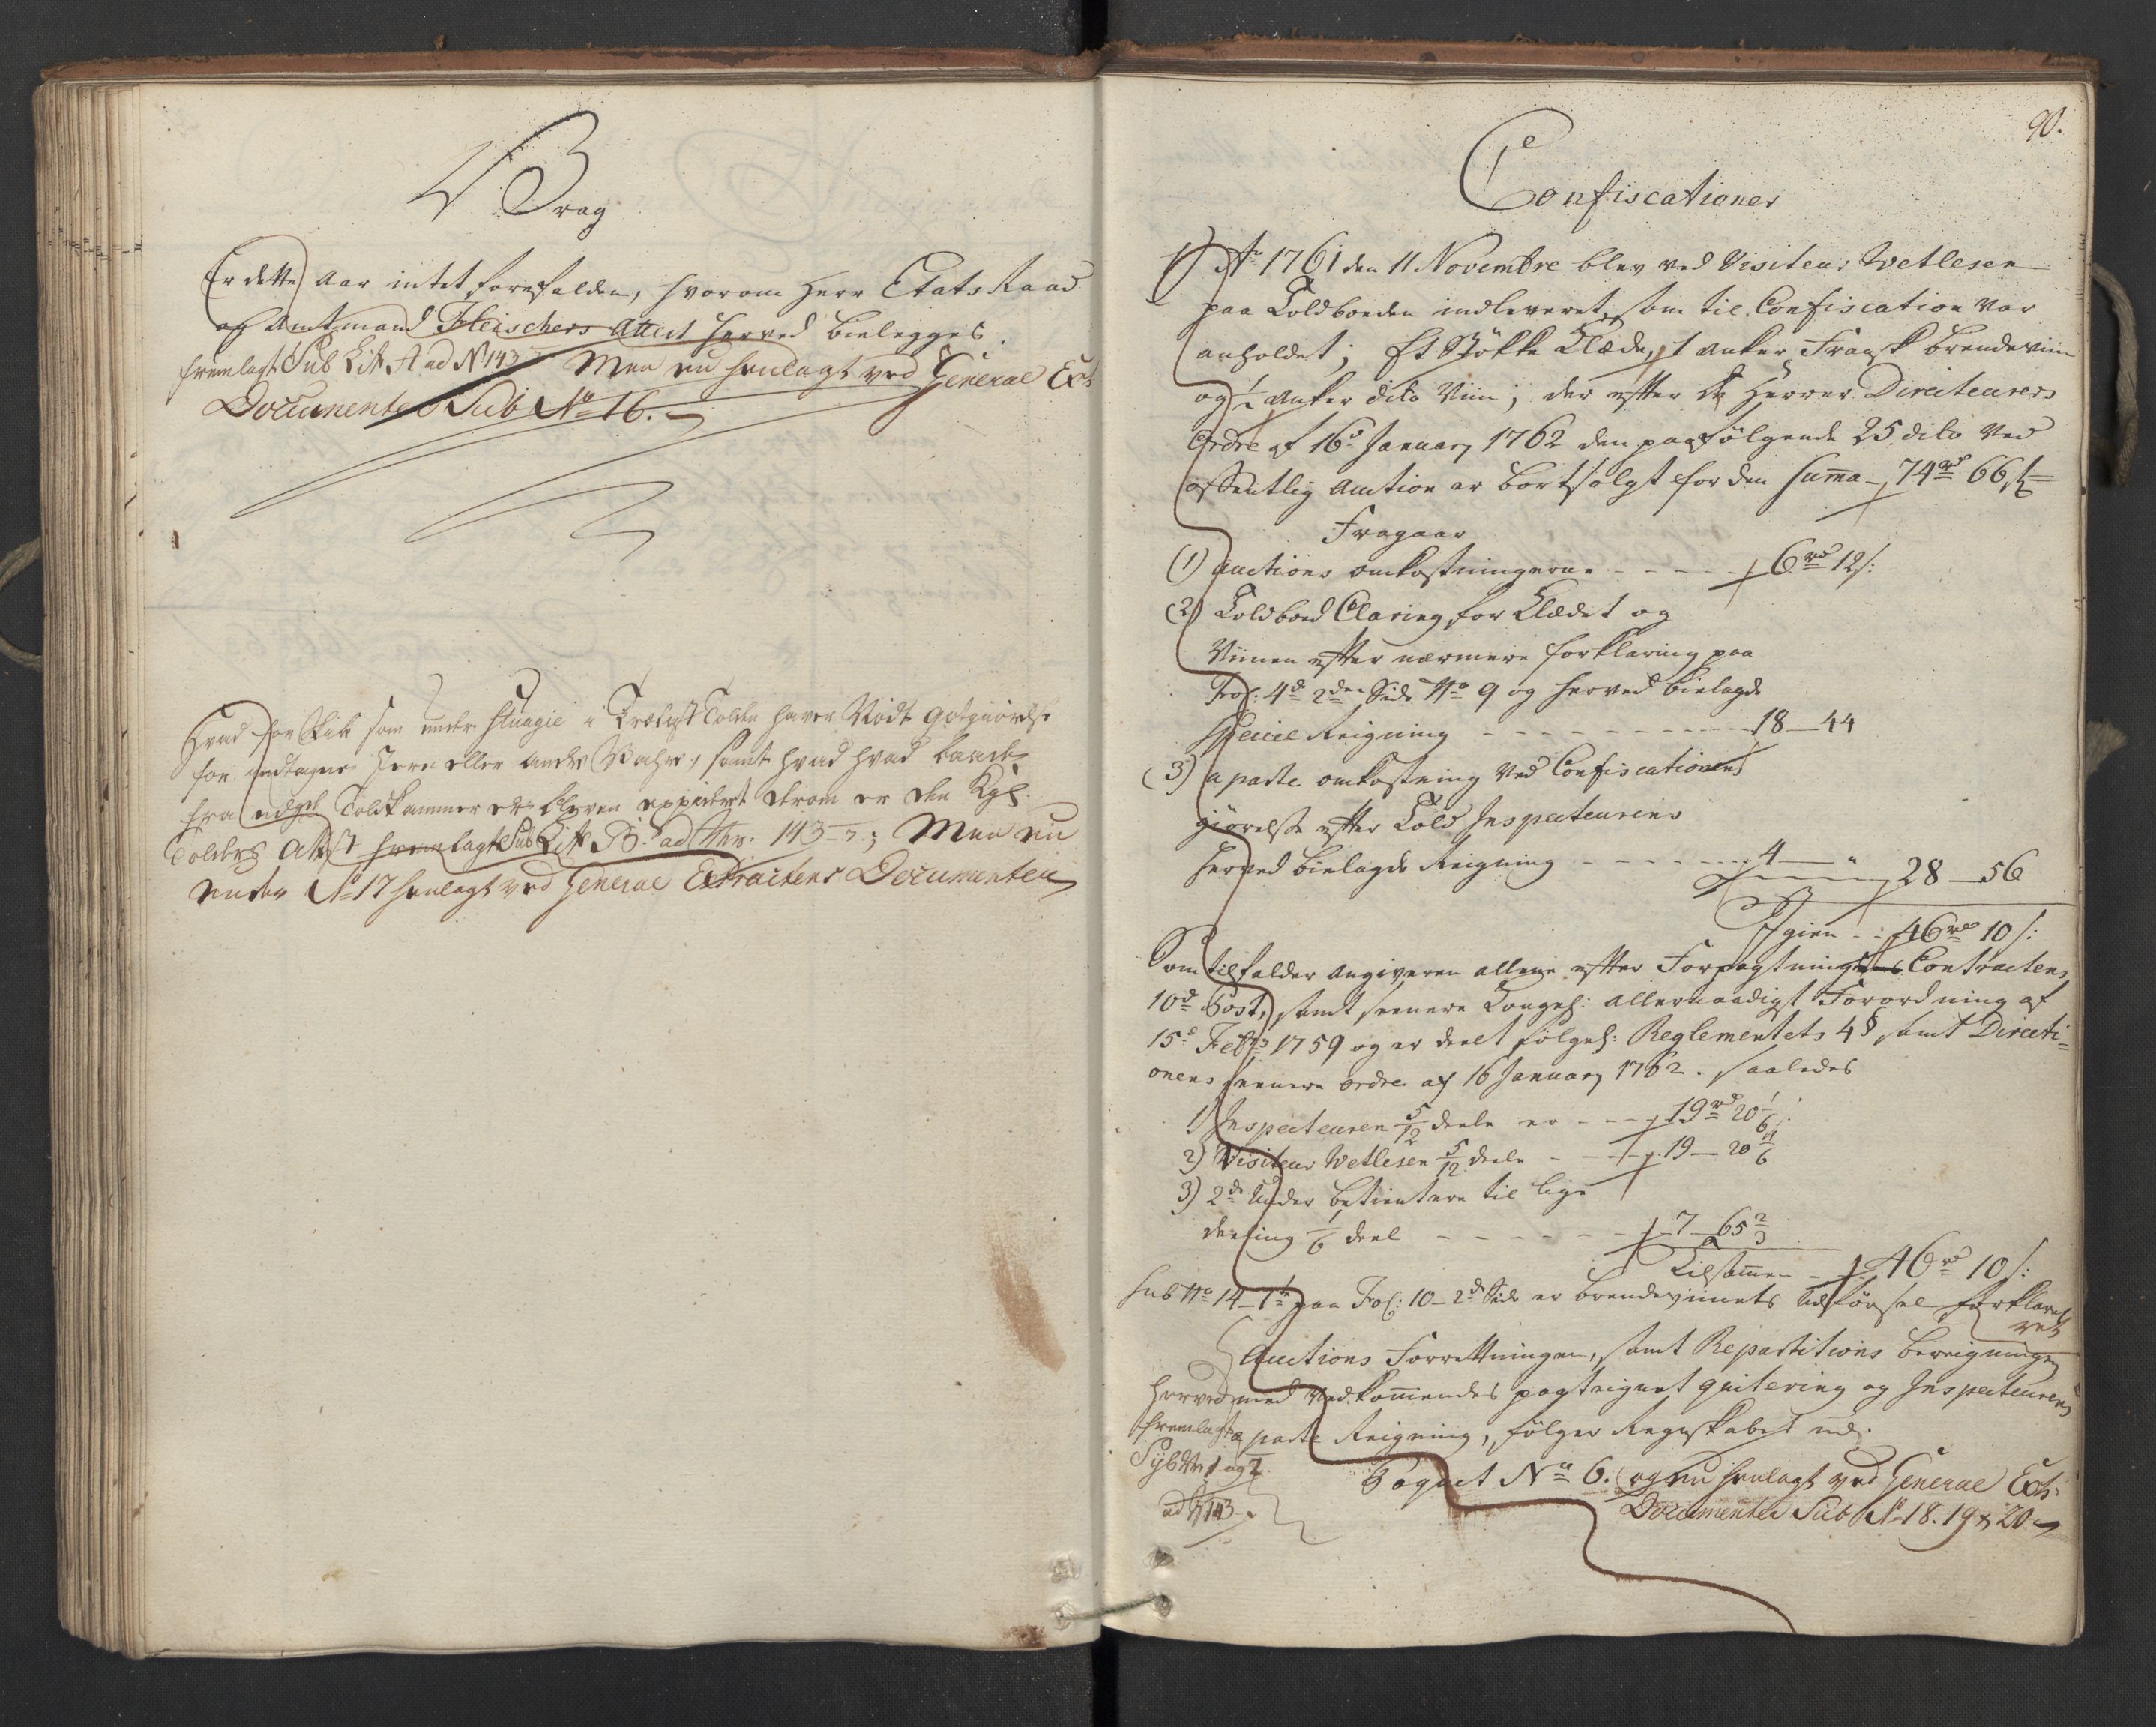 Vrag
Er dette Aar intet forefalden, hvorom Herr Etats Raad
og Amtmand Fleischers Attest herved bielegges.
fremlagt Sub Lit A ad N 143 Men nu henlagt ved General Ext
Documenter Sub No 16.
Hvad for Skib som under i Trælast Tolden haver Nødt godtgiørelse
for indtagne Jern eller andre Vahre, samt hvad hvad
fra Toldkammer er bleven expederet derom er den Kgl.
Tolders Attest fremlagt Sub Lit B ad Nr. 143 ; Men nu
under No 17 henlagt ved General Extractens Documenter
90.
Confiscationer
1) Ao 1761 den 11 Novembre blev ved Visiteur Wetlesen
paa Toldboeden indleveret, som til Confiscation var
anholdet; Et Støkke Klæde, 1 Anker Fransk brendeviin
og ½ Anker dito Viin; der efter De Herrer Directeurers
Ordre af 16d January 1762 den paafølgende 25 dito ved
offentlig Auction er bortsolgt for den Summa - 74rd 66s
Fragaar
(1) Auctions omkostningerne - - - - - 6rd 12s:
(2) Toldboed Claring for Klædet og
Viinen efter nærmere forklaring paa
Fol: 4d 2den Side No 9 og herved bielagde
Speciel Reigning - - - - - - - - 18 — 44
(3) aparte omkostning ved Confiscationens
giørelse efter Told Inspecteurens
herved bielagde Reigning - - - - - 4 — " 28 — 56
Igien - - 46rd 10s:
Som tilfalder Angiveren allene efter Forpagtnings Contractens
10d Post, samt seenere Kongel: allernaadigst Forordning af
15d Febr 1759 og er deelt følgel: Reglementets 4§ samt Directi=
onens seenere ordre af 16 January 1762. saaledes
1) Inspecteuren 5/12 deele er - - - 19rd 20 1/6 s:
2) Visiteur Wetlesen 5/12 deele - - - 19 — 20 1/6
3) 2de Under betientere til lige
deeling 1/6 deel - - - - - - 7 — 65 2/3
Tilsammen - 46rd 10s:
Sub No 14 - 1 paa Fol: 10 - 2d Side er brendeviinets Udførsel forklaret
Auctions Forretningen, samt Repartitions bereigningen
herved med vedkommendes paategnet qvitering og Inspecteurens
fremlagt aparte Reigning, følger Regnskabet ud.
Sub No 1 og 2
Paquet No 6. og nu henlagt ved General Ext:
ad N 143
Documenter Sub No 18. 19 & 20